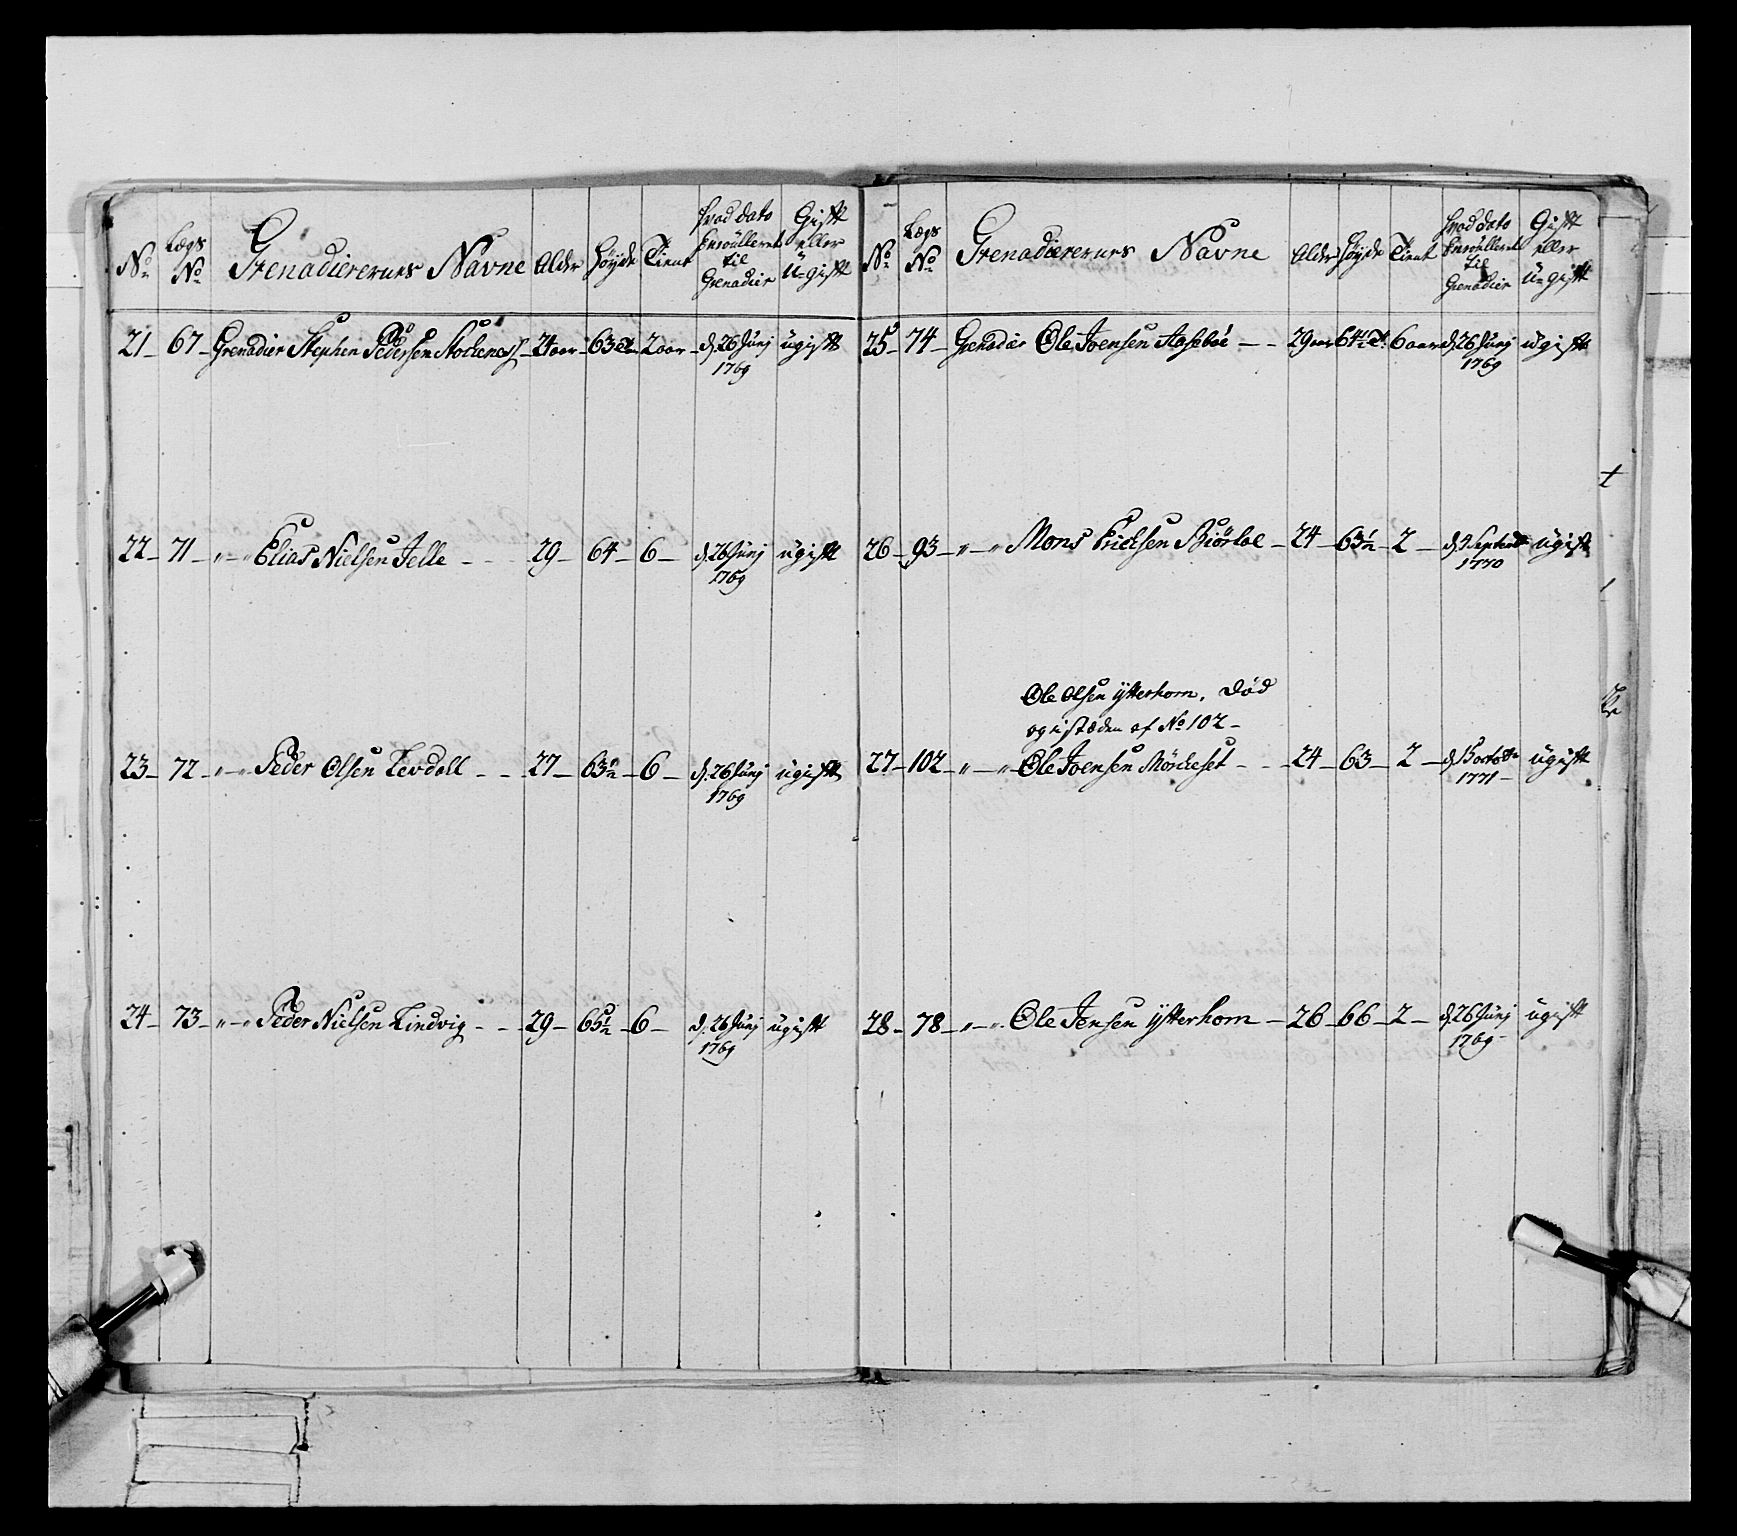 No Lægs No Grenadierernes Navne Alder Høyde Tient hvad dato Enroulleret til Grenadier Gift eller Ugift
21 67 Grenadier Stephen Pedersen 24 aar 63 2 aar d. 26 Junj 1769 ugift
22 71 " " Elias Nielsen Jelle 29 64 6 d. 26 Junj 1769 ugift
23 72 " " Peder Olsen Levdall 27 63 6 d. 26 Junj 1769 ugift
24 73 " " Peder Nielsen Lindvig 29 65 1/2 6 d. 26 Junj 1769 ugift
No Lægs No Grenadierernes Navne Alder Høyde Tient hvad dato Enroulleret til Grenadier Gift eller Ugift
25 74 Grenadier Ole Joensen 29 aar 64 1/2 6 aar d. 26 Junj 1769 ugift
26 93 " " Mons Ericksen 24 63 1/2 2 1770 ugift
Ole Olsen ÿtterhorn, Død
og i stæden af No 102
27 102 " " Ole Joensen Mörckeset 24 63 2 1771 ugift
28 78 " " Ole Jensen ÿtterhorn 26 66 2 d. 26 Junj 1769 ugift